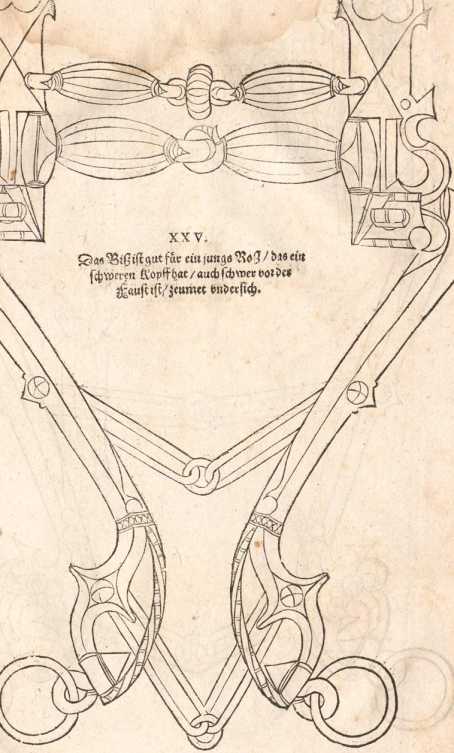 XXV.
Das Biß ist gut für ein jungs Roß / das ein
schweren Kopff hat / auch schwer vor der
Faust ist / zeumet vndersich.